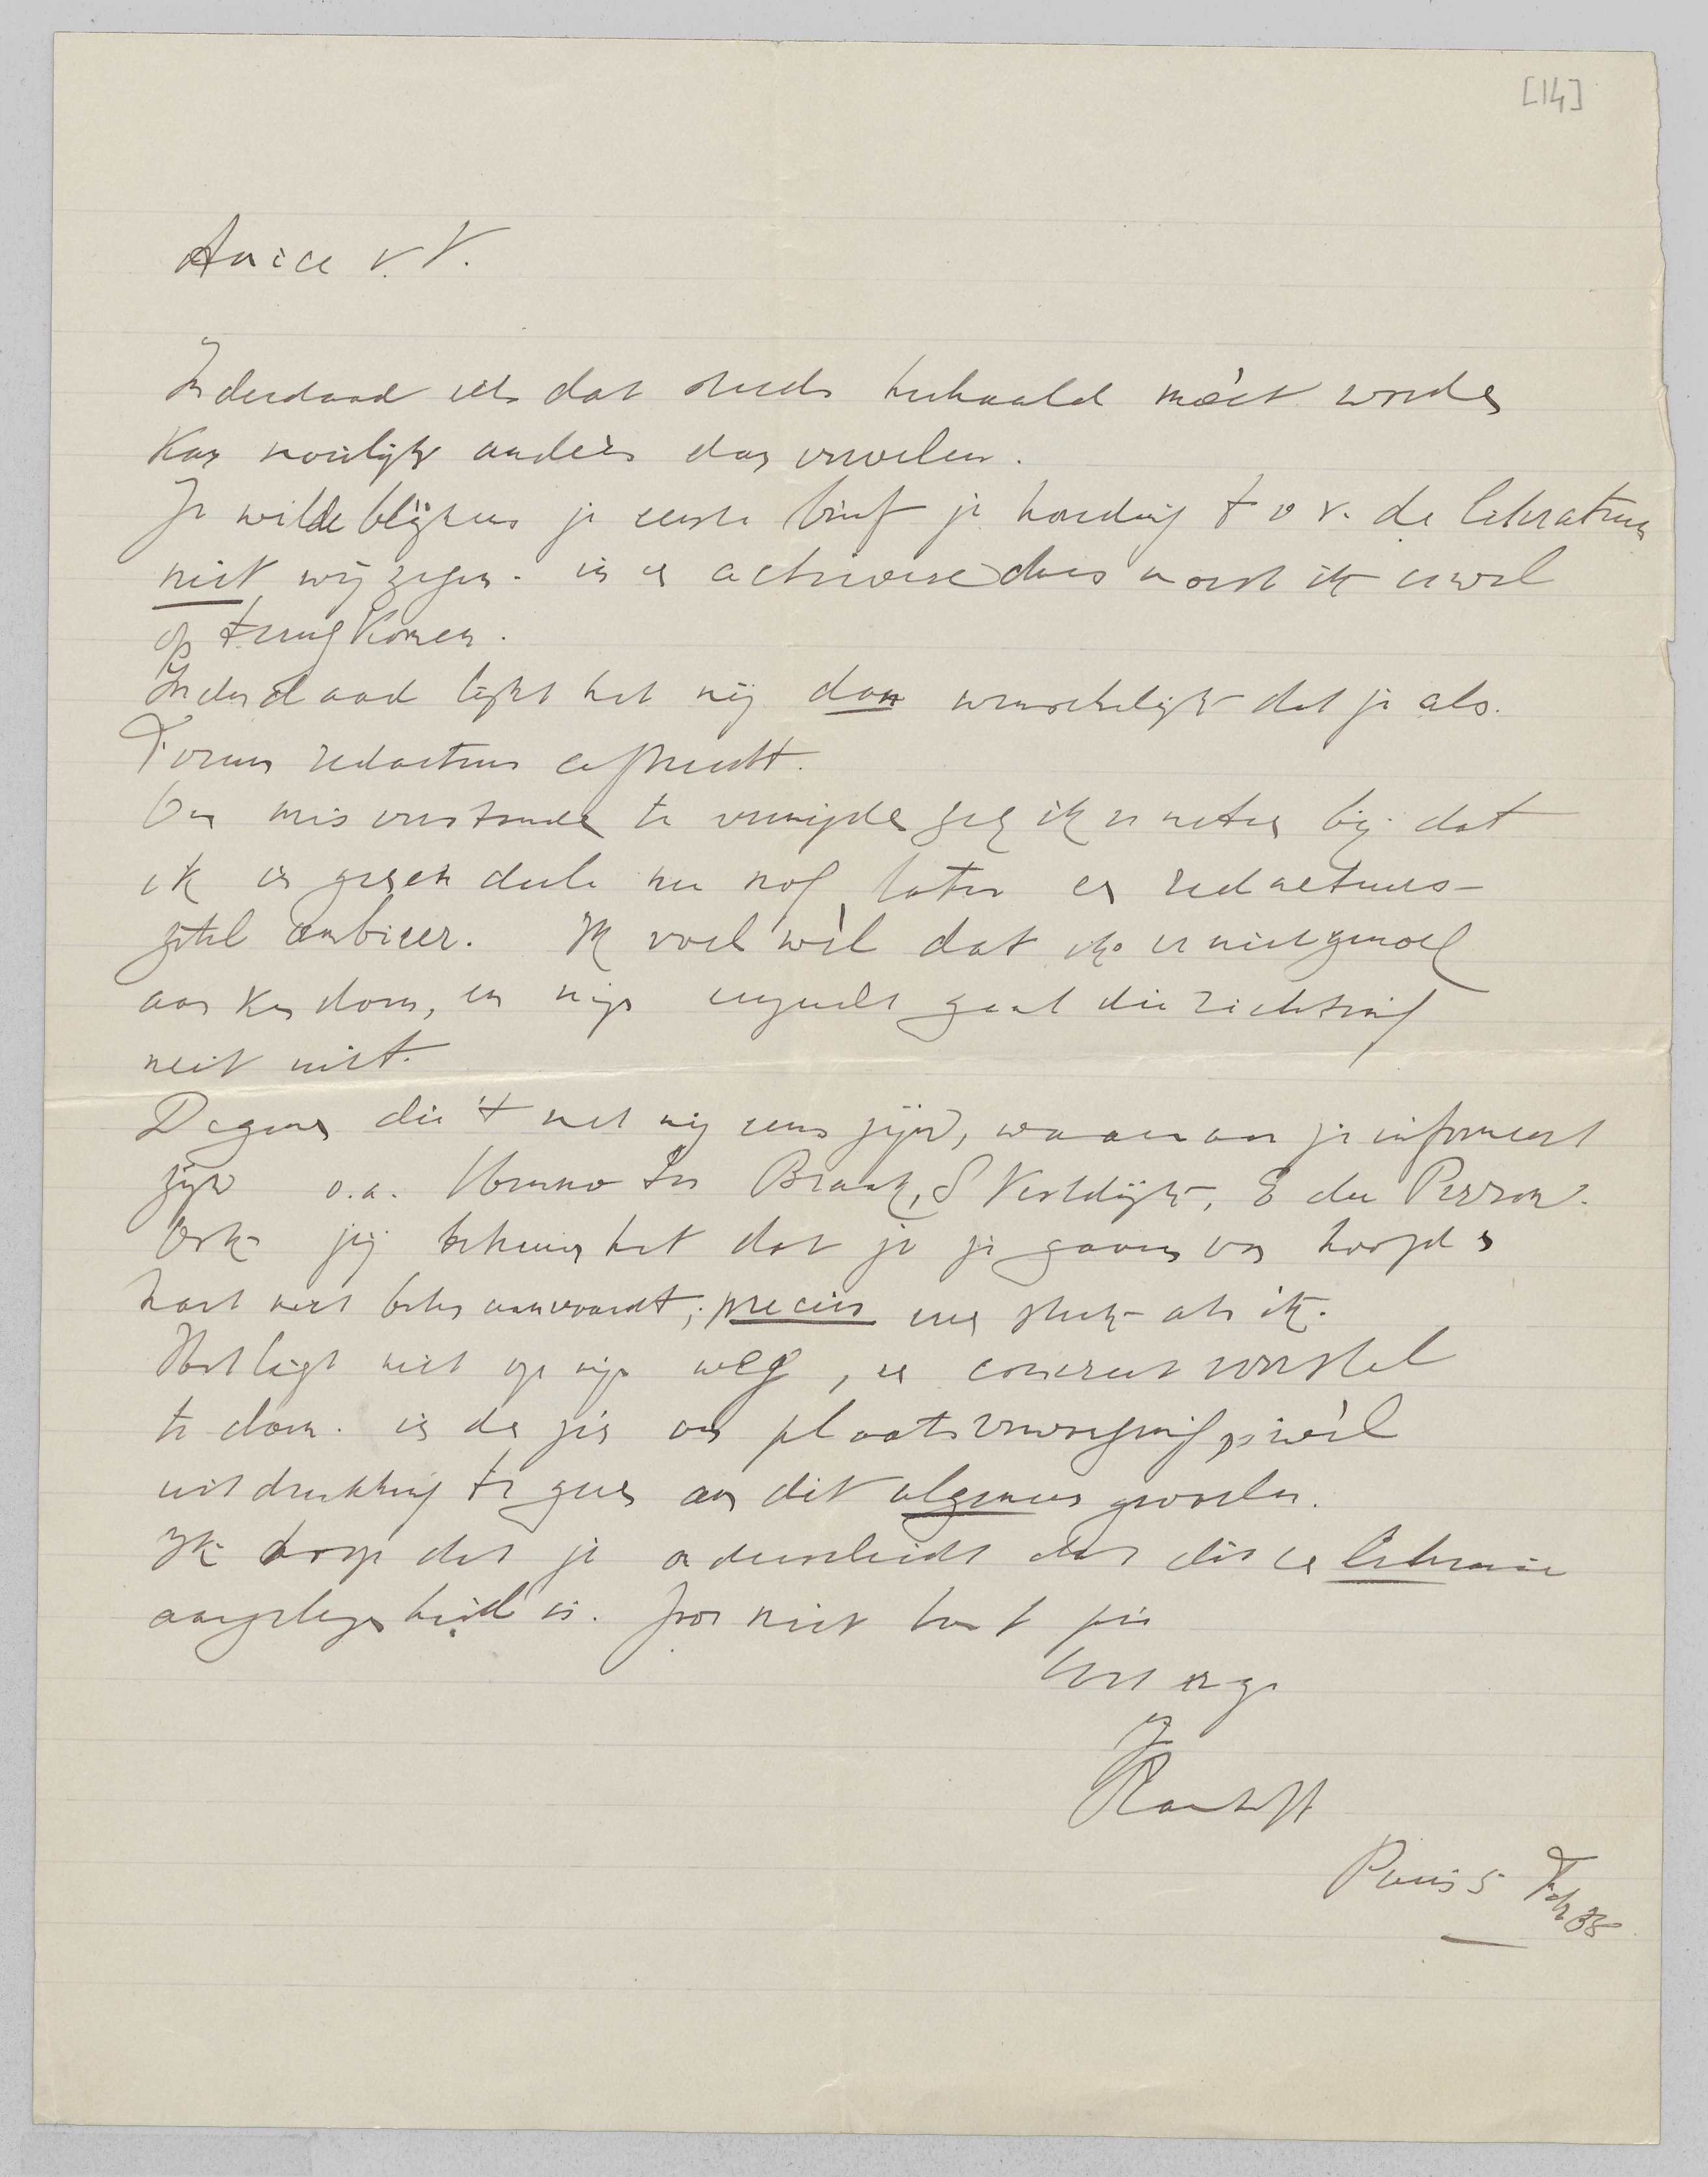 [14]
Amice v. V.
Inderdaad iets dat steeds herhaald móet worden
kan moeilijk anders dan vervelen.
Je wilde blijkens je eerste brief je houding t o v. de literatuur
niet wijzigen. in en dus moest ik er wel
op terug komen.
Inderdaad lijkt het mij dan wenschelijk dat je als
Forum redacteur aftreedt.
Om misverstanden te vermijden zeg ik er meteen bij dat
ik in geenen deele nu nog later en redacteurs-
zetel ambieer. Ik voel wèl dat ik er niet genoeg
aan kan doen, en mijn eerzucht gaat die richting
niet uit.
Degenen die 't met mij eens zijn, waarnaar je informeert
zijn o.a. Menno ter Braak, S Vestdijk, E du Perron.
Ook jij bekent het dat je je gaarne van hoofd en
hart niet beter aanwendt; precies een stuk als ik.
Het ligt niet op mijn weg, een concreet voorstel
te doen. in de zin van plaatsvervanging, wèl
uitdrukking te geven aan dit algemeen gevoelen.
Ik hoop dat je onderscheidt dat dit en literaire
aangelegenheid is.
Slauerhoff
Parijs 5 Feb 35